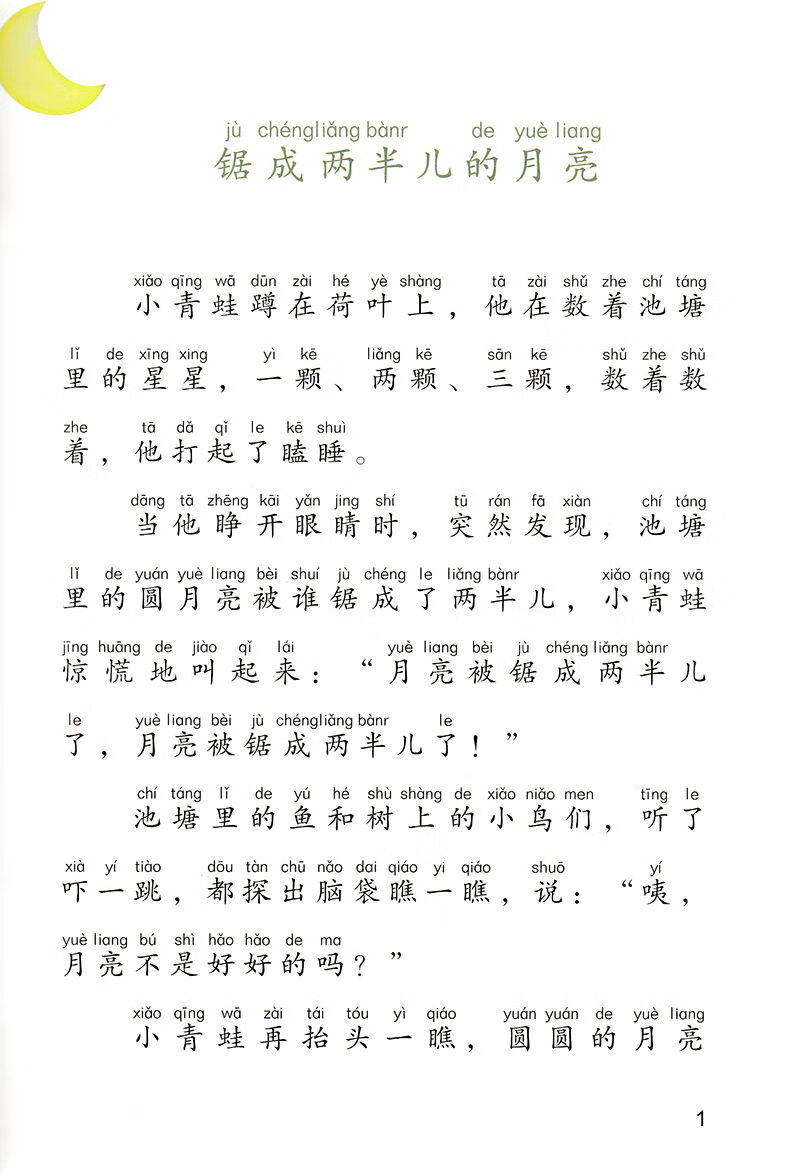 jù chéngliǎng bànr de yuè liang
锯成两半儿的月亮
xiǎo qīng wā dūn zài hé yè shàng tā zài shǔ zhe chí táng
小青蛙蹲在荷叶上，他在数着池塘
lǐ de xīng xing yì kē liǎng kē sān kē shǔ zhe shǔ
里的星星，一颗、两颗、三颗，数着数
zhe tā dǎ qǐ le kē shuì
着，他打起了瞌睡。
dāng tā zhēng kāi yǎn jing shí tū rán fā xiàn chí táng
当他睁开眼睛时，突然发现，池塘
lǐ de yuán yuè liang bèi shuí jù chéng le liǎng bànr xiǎo qīng wā
里的圆月亮被谁锯成了两半儿，小青蛙
jīng huāng de jiào qǐ lái yuè liang bèi jù chéng liǎng bànr
惊慌地叫起来：“月亮被锯成两半儿
le yuè liang bèi jù chéngliǎng bànr le
了，月亮被锯成两半儿了！”
chí táng lǐ de yú hé shù shàng de xiǎo niǎo men tīng le
池塘里的鱼和树上的小鸟们，听了
xià yí tiào dōu tàn chū nǎo dai qiáo yi qiáo shuō yí
吓一跳，都探出脑袋瞧一瞧，说：“咦，
yuè liang bú shì hǎo hǎo de ma
月亮不是好好的吗？”
xiǎo qīng wā zài tái tóu yì qiáo yuán yuán de yuè liang
小青蛙再抬头一瞧，圆圆的月亮
1